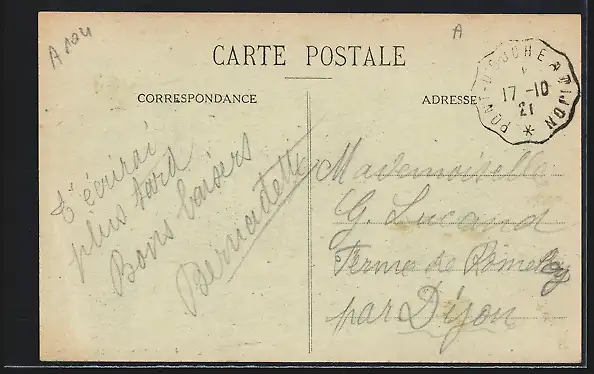 A 104
A
CARTE POSTALE
CORRESPONDANCE
ADRESSE
PONT-D'OUCHE A DIJON
17-10
21
t'écrirai
plus tard
Bons baisers
Bernadette
Mademoiselle
G. Lucand
Ferme de Romeley
par Dijon